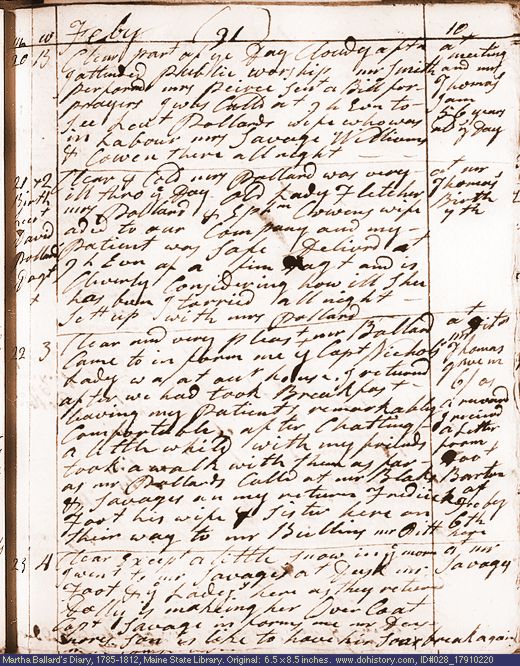 mo w Feby 21
20 B Clear part of ye Day Cloudy after
I attended Public worship mr Smith
performd mrs Peirce sent a Bill for
prayers I was Calld at 9 h Evn to
see Leut Pollards wife who was
in Labour mrs Savage Williams
& Cowen there all night
10
at meeting
and mr
Thomas
I am
56 years
old ys day
21 2 Clear & Cold mrs Pollard was very
ill thro ye Day. old Lady Fletcher
mrs Ballard & Ephm Cowens wife
aded to our Company and my
patient was safe Delivrd at
7 h Evn of a fine Dagt and is
Cleverly Considering how ill She
has been I Tarried all night
Sett up with mrs Pollard
Birth
Leut
David
Pollard
Dagt
at mr
Thomas
Birth
7th
22 3 Clear and very pleast mr Ballard
Came to inform me yt Capt Nichols
Lady was at our house. I returnd
after we had took Breakfast
leaving my Patient remarkably
Comfortable after Chatting
a little while with my friends
took a walk with them as far
as mr Pollards Calld at mr Blake
& Savages on my return Fredrick
Foot his wife & Sister here on
their way to mr Bullins mr Pitt
at
mr
Thomas
gave me
6/ as
a reward
I receivd
a letter
from
Doct
Barton
of
Feby
6th
here
23 4 Clear Except a little snow in ye morn
I went to mr Savages at Dusk mr
Foot & ye Ladys here as they return
Dolly is makeing her Over Coat
Capt Savage informs me mr
Son is like to have his break again
at mr
Savages
Martha Ballard's Diary, 1785-1812, Maine State Library. Original: 6.5 x 8.5 inches. www.dohistory.com, ID#028_17910220